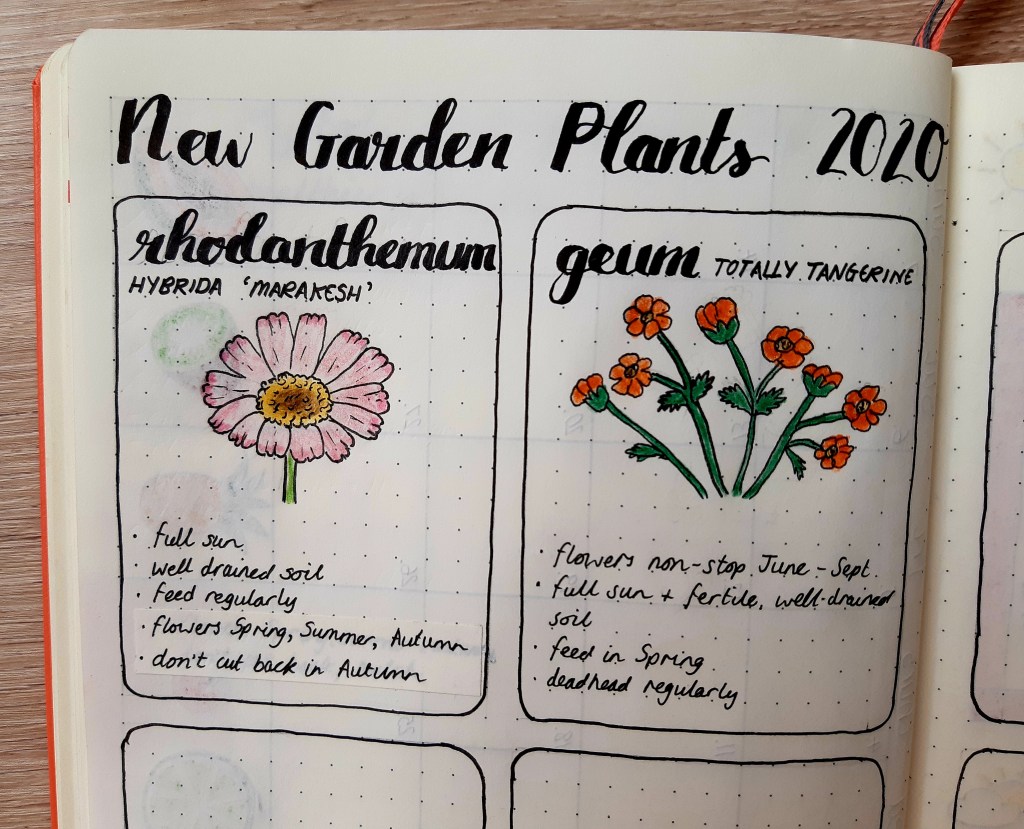 New Garden Plants 2020
rhodanthemum
HYBRIDA 'MARAKESH'
• full sun
• well drained soil
• feed regularly
• flowers Spring, Summer, Autumn
• don't cut back in Autumn
geum TOTALLY TANGERINE
• flowers non-stop June - Sept.
• full sun + fertile, well-drained
soil
• feed in Spring
• deadhead regularly